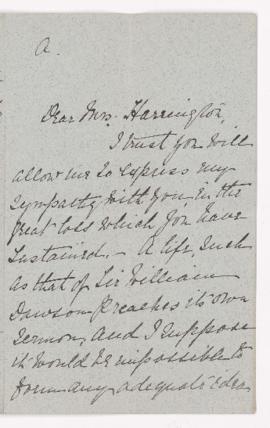 A.
Dear Mrs. Harrington,
I trust you will
allow me to express my
sympathy with you in the
great loss which you have
sustained. - A life, such
as that of Sir William
Dawson preaches its own
sermon, and I suppose
it would be impossible to
form any adequate idea